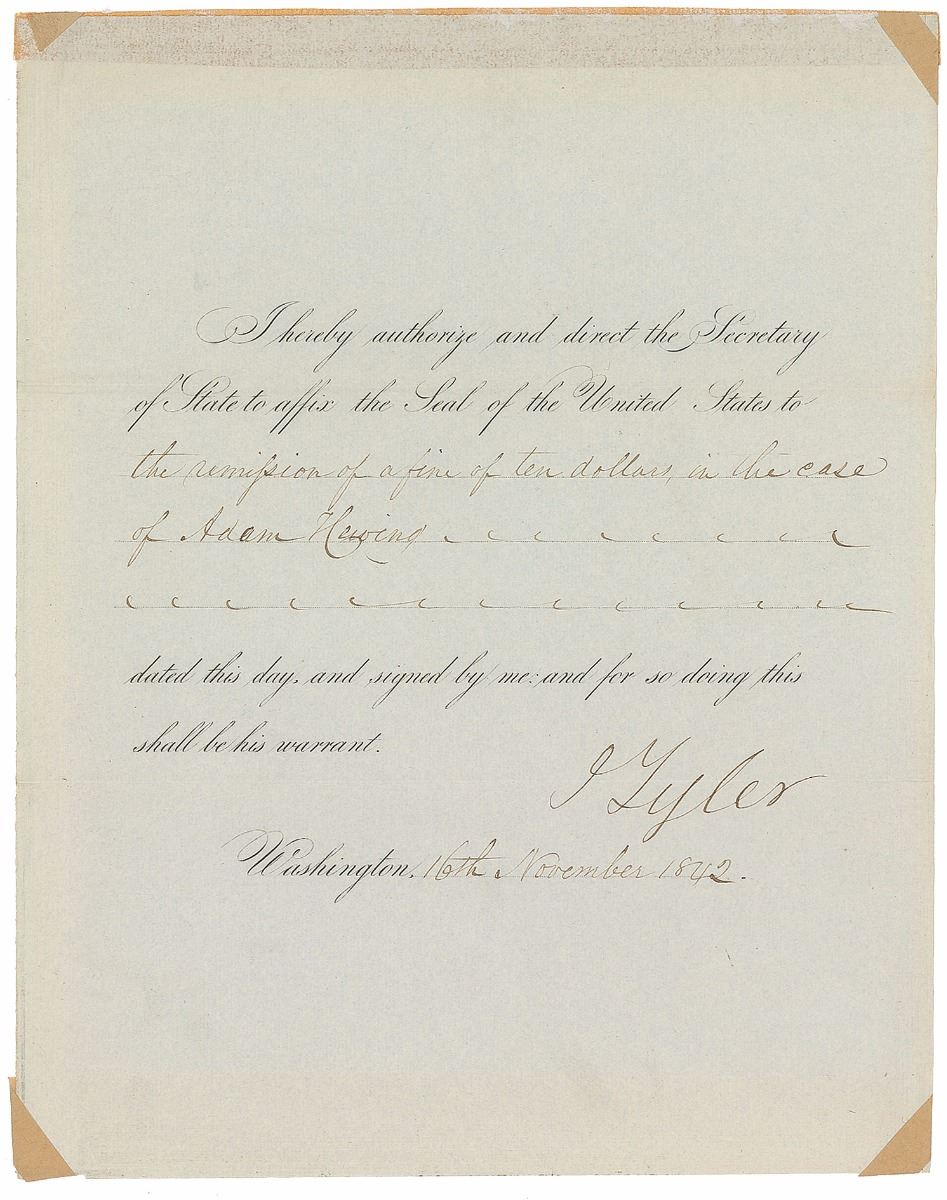 I hereby authorize and direct the Secretary
of State to affix the Seal of the United States to
the remission of a fine of ten dollars, in the case
of Adam
dated this day, and signed by me: and for so doing this
shall be his warrant.
J Tyler
Washington, 16th November 1842.